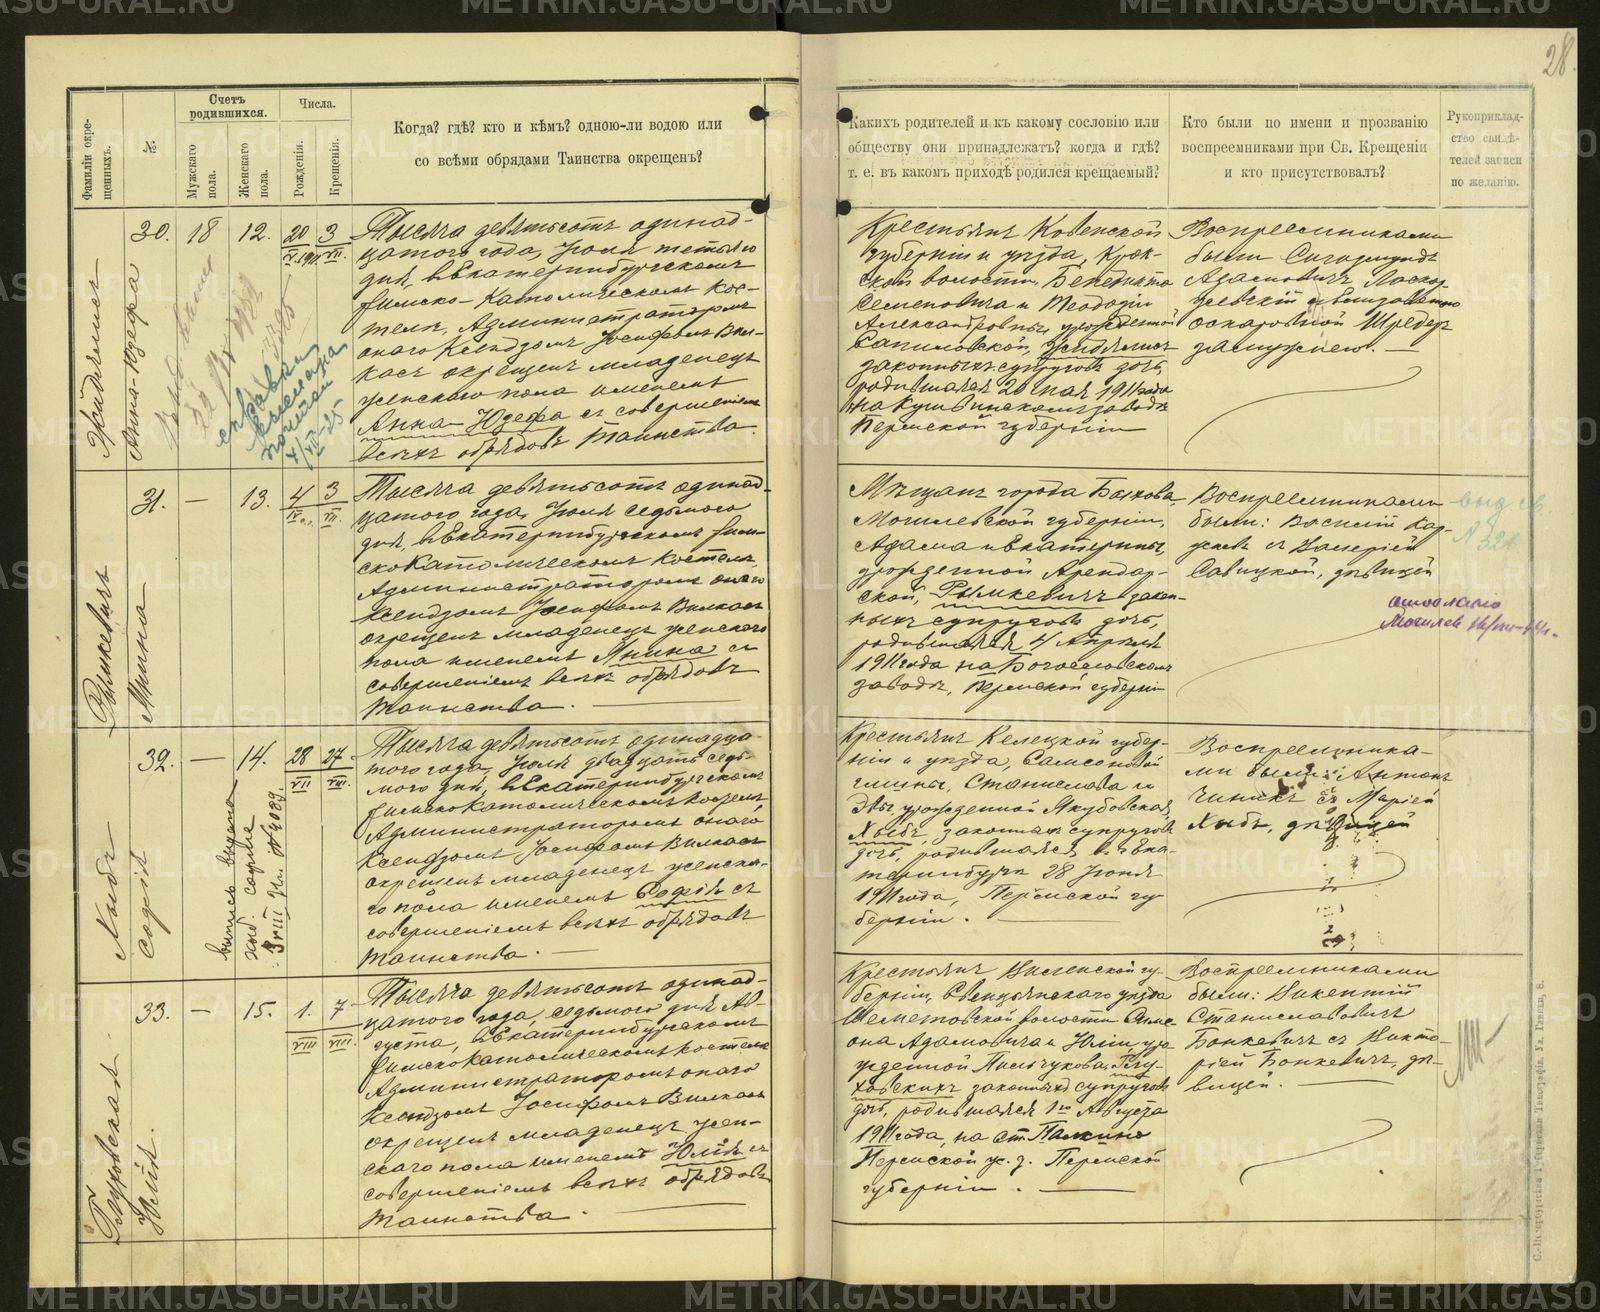 28.
Фамиліи окре-
щенныхъ.
№
Счетъ
родившихся.
Мужскаго
пола.
Женскаго
пола.
Числа.
Рожденія.
Крещенія.
Когда? гдѣ? кто и кѣмъ? одною-ли водою или
со всѣми обрядами Таинства окрещенъ?
Какихъ родителей и къ какому сословію или
обществу они принадлежатъ? когда и гдѣ?
т. е. въ какомъ приходѣ родился крещаемый?
Кто были по имени и прозванію
воспреемниками при Св. Крещеніи
и кто присутствовалъ?
Рукоприклад-
ство свидѣ-
телей записи
по желанію.
Анна-Юзефа
30. 18 12. 20 3
VII.
Тысяча девятьсотъ одинад-
цатого года, Іюля третьяго
дня, въ Екатеринбургскомъ
Римско-Католическомъ Кос-
телѣ, Администраторомъ
онаго Ксендзомъ Іосифомъ Вил-
касъ окрещенъ младенецъ
женскаго пола именемъ
Анна-Юзефа съ совершеніемъ
всѣхъ обрядовъ Таинства.
Крестьянъ Ковенской
губерніи и уѣзда,
волости, Бенедикта
Семеновича и Теодозіи
Александровны, урожденной
законныхъ супруговъ дочь,
родившаяся 20 мая 1911 года
на Кушвинскомъ заводѣ
Пермской губерніи
Воспреемниками
были Сигизмундъ
Адамовичъ
оскаровной Шредеръ
замужнею. —
Рымкевичъ
Янина
31. — 13. 4 3
IV VII.
Тысяча девятьсотъ одинад-
цатого года, Іюля седьмого
дня, въ Екатеринбургскомъ Рим-
ско Католическомъ Костелѣ,
Администраторомъ онаго
Ксендзомъ Іосифомъ Вилкасъ
окрещенъ младенецъ женскаго
пола именемъ Янина съ
совершеніемъ всѣхъ обрядовъ
Таинства. —
Мѣщанъ города Быхова,
Могилевской губерніи,
Адама и Екатерины,
урожденной Арендар-
ской, Рымкевичъ закон-
ныхъ супруговъ дочь,
родившаяся 4 Апрѣля
1911 года на Богословскомъ
заводѣ, Пермской губерніи
Воспреемниками
были: Василій Кар-
съ Валеріей
Савицкой, дѣвицей
выд св.
N 321
Хыбъ
Софія
32. — 14. 28 27.
VII VIII.
выпись выдана
хыб. софіе
Тысяча девятьсотъ одинадца-
того года, Іюля двадцать седь-
мого дня, въ Екатеринбургскомъ
Римско Католическомъ Костелѣ
Администраторомъ онаго
Ксендзомъ Іосифомъ Вилкасъ
окрещенъ младенецъ женска-
го пола именемъ Софія съ
совершеніемъ всѣхъ обрядовъ
Таинства. —
Крестьянъ Келецкой губер-
ніи и уѣзда, Самсоновской
гмины, Станислава и
Эвы, урожденной Якубовская,
Хыбъ, законныхъ супруговъ
дочь, родившаяся въ Ека-
теринбургѣ 28 Іюня
1911 года, Пермской гу-
берніи. —
Воспреемника-
ми были: Антонъ
съ Маріей
Хыбъ, дѣвицей
Глуховская
Юлія.
33. — 15. 1. 7
VIII VIII.
Тысяча девятьсотъ одинад-
цатого года, седьмого дня Ав-
густа, въ Екатеринбургскомъ
Римско Католическомъ Костелѣ
Администраторомъ онаго
Ксендзомъ Іосифомъ Вилкасъ
окрещенъ младенецъ жен-
скаго пола именемъ Юлія съ
совершеніемъ всѣхъ обрядовъ
Таинства. —
Крестьянъ Виленской гу-
берніи, Свенцянскаго уѣзда
волости Симе-
она Адамовича и Юліи, уро-
жденной Пильчукова, Глу-
ховскихъ законныхъ супруговъ
дочь, родившаяся 1го Августа
1911 года, на ст. Палкино
Пермской ж. д. Пермской
губерніи. —
Воспреемниками
были: Викентій
Станиславовичъ
Бонкевичъ съ Викто-
ріей Бонкевичъ, дѣ-
вицей.
METRIKI.GASO-URAL.RU